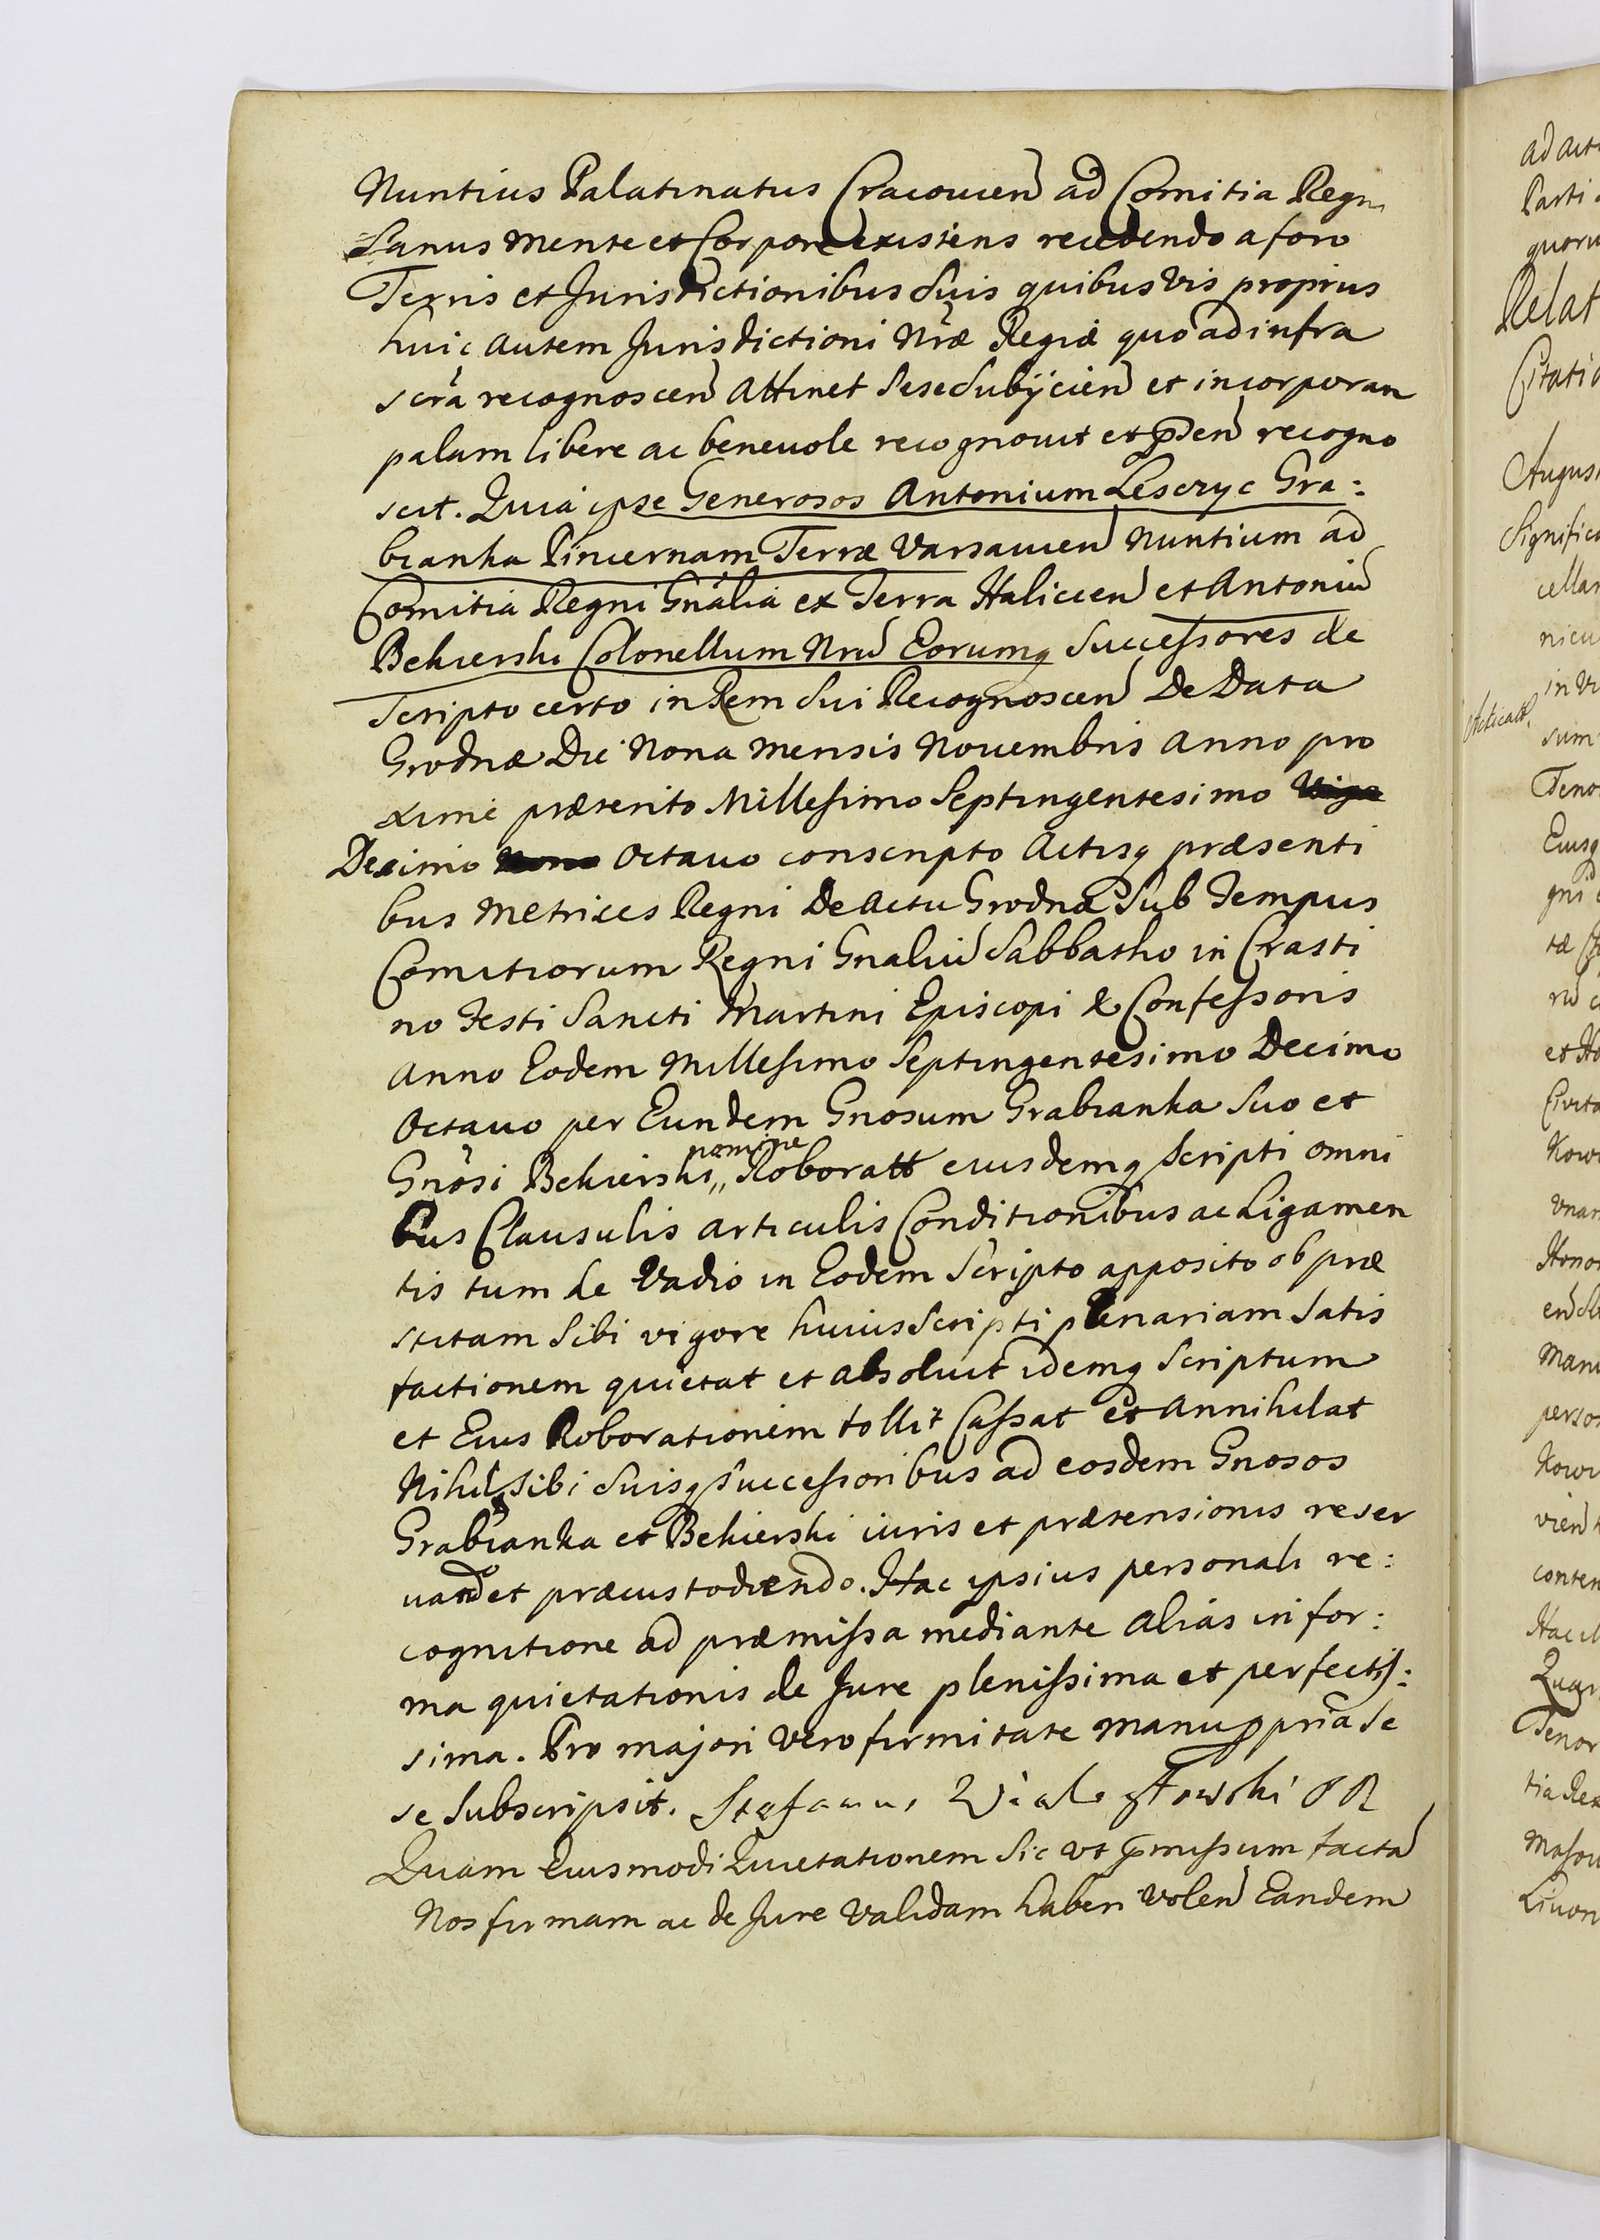 Nuntius Palatinatus Cracovien ad Comitia Regni
Sanus mente et Corpore existens recedendo a foro
Terris et Jurisdictionibus Suis quibusvis proprius
huic autem Jurisdictioni Nræ Regiæ quo ad infra
scra recognoscen Attinet Sese Subijcien et incorporan
palam libere ac beneuole recognouit et pden recogno
scit. Quia ipse Generosos Antonium Lesczyc Gra:
bianka Pincernam Terræ Varsauien Nuntium ad
Comitia Regni Gnalia ex Terra Haliccen et Antoniu
Bekierski Colonellum Nru Eorumq Successores de
Scripto certo in Rem Sui Recognoscen De Data
Grodnæ Die Nona mensis Nouembris Anno pro
xime præterito Millesimo Septingentesimo
Decimo Octauo conscripto Actisq præsenti
bus Metrices Regni De Actu Grodnæ Sub Tempus
Comitiorum Regni Gnaliu Sabbatho in Crasti
no Festi Sancti Martini Episcopi & Confessoris
Anno Eodem Millesimo Septingentesimo Decimo
Octauo per Eundem Gnosum Grabianka Suo et
Gnosi Bekierski,, nomine Roboratt eiusdemq Scripti omni
bus Clausulis articulis Conditionibus ac Ligamen
tis tum de Vadio in Eodem Scripto apposito ob præ
stitam Sibi vigore huius Scripti plenariam Satis
factionem quietat et absoluit idemq Scriptum
et Eius Roborationem tollit Cassat et Annihilat
Nihil Sibi Suisq Successoribus ad eosdem Gnosos
Grabianka et Bekierski iuris et prætensionis reser
uando et præcustodiendo. Hac ipsius personali re:
cognitione ad præmissa mediante alias in for:
ma quietationis de Jure plenissima et perfectis:
sima. Pro majori Vero firmitate manu ppria Se
se Subscripsit. Stefanus
Quam Eiusmodi Quietationem Sic ut pmissum facta
Nos firmam ac de Jure Validam haberi Volen Eandem
ad
Parti
quoru
Relat
Citatio
August
Significa
cellar
nicu
in
sum
Teno
Eiusq
et Ho
Civita
Kow
Honor
Manu
perso
Kowi
conten
Quar
Tenor
tia Re
Masou
Liuon